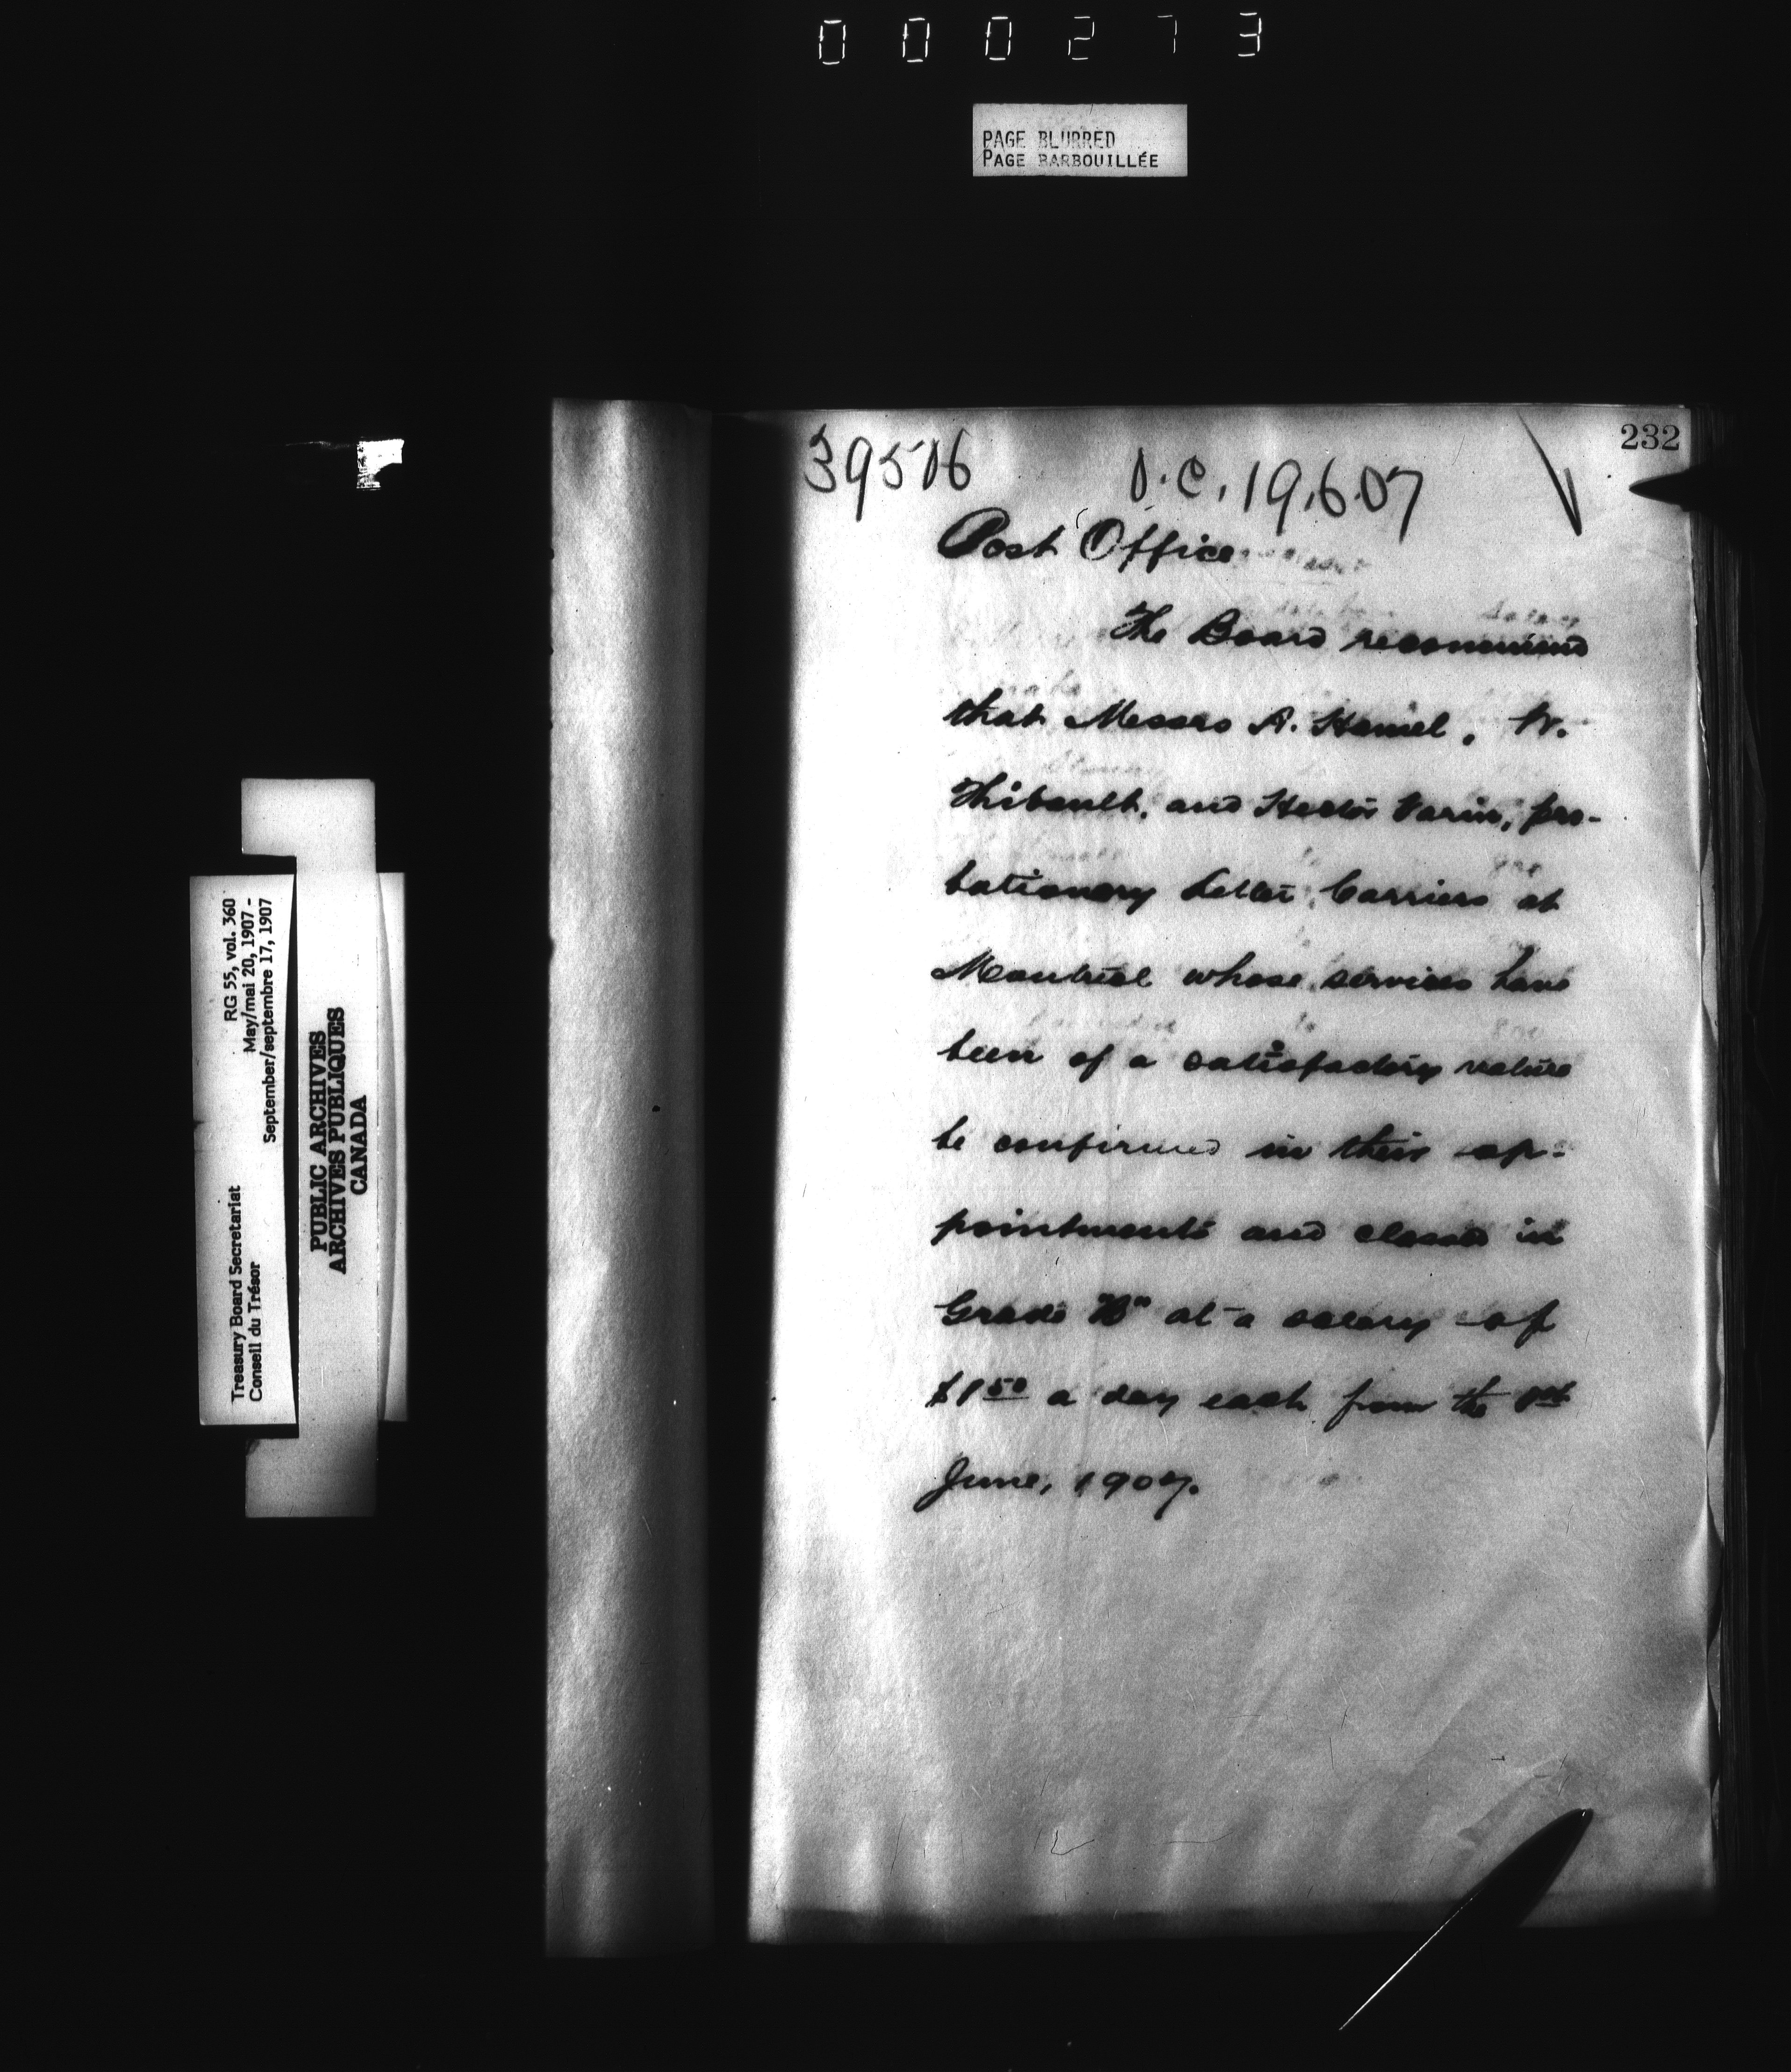 0 0 0 2 7 3
PAGE BLURRED
PAGE BARBOUILLÉE
232
39516 O.C. 19.6.07
Post Office
The Board recommend
that Messrs A. Hamel, W.
Thibault, and Hector Varin, pro-
bationary Letter Carriers at
Montreal whose services have
been of a satisfactory nature
be confirmed in their ap-
pointments and classed in
Grade "B" at a salary of
$1 50 a day each from the 1st
June, 1907.
Treasury Board Secretariat RG 55, vol. 360
Conseil du Trésor May/mai 20, 1907 -
September/septembre 17, 1907
PUBLIC ARCHIVES
ARCHIVES PUBLIQUES
CANADA